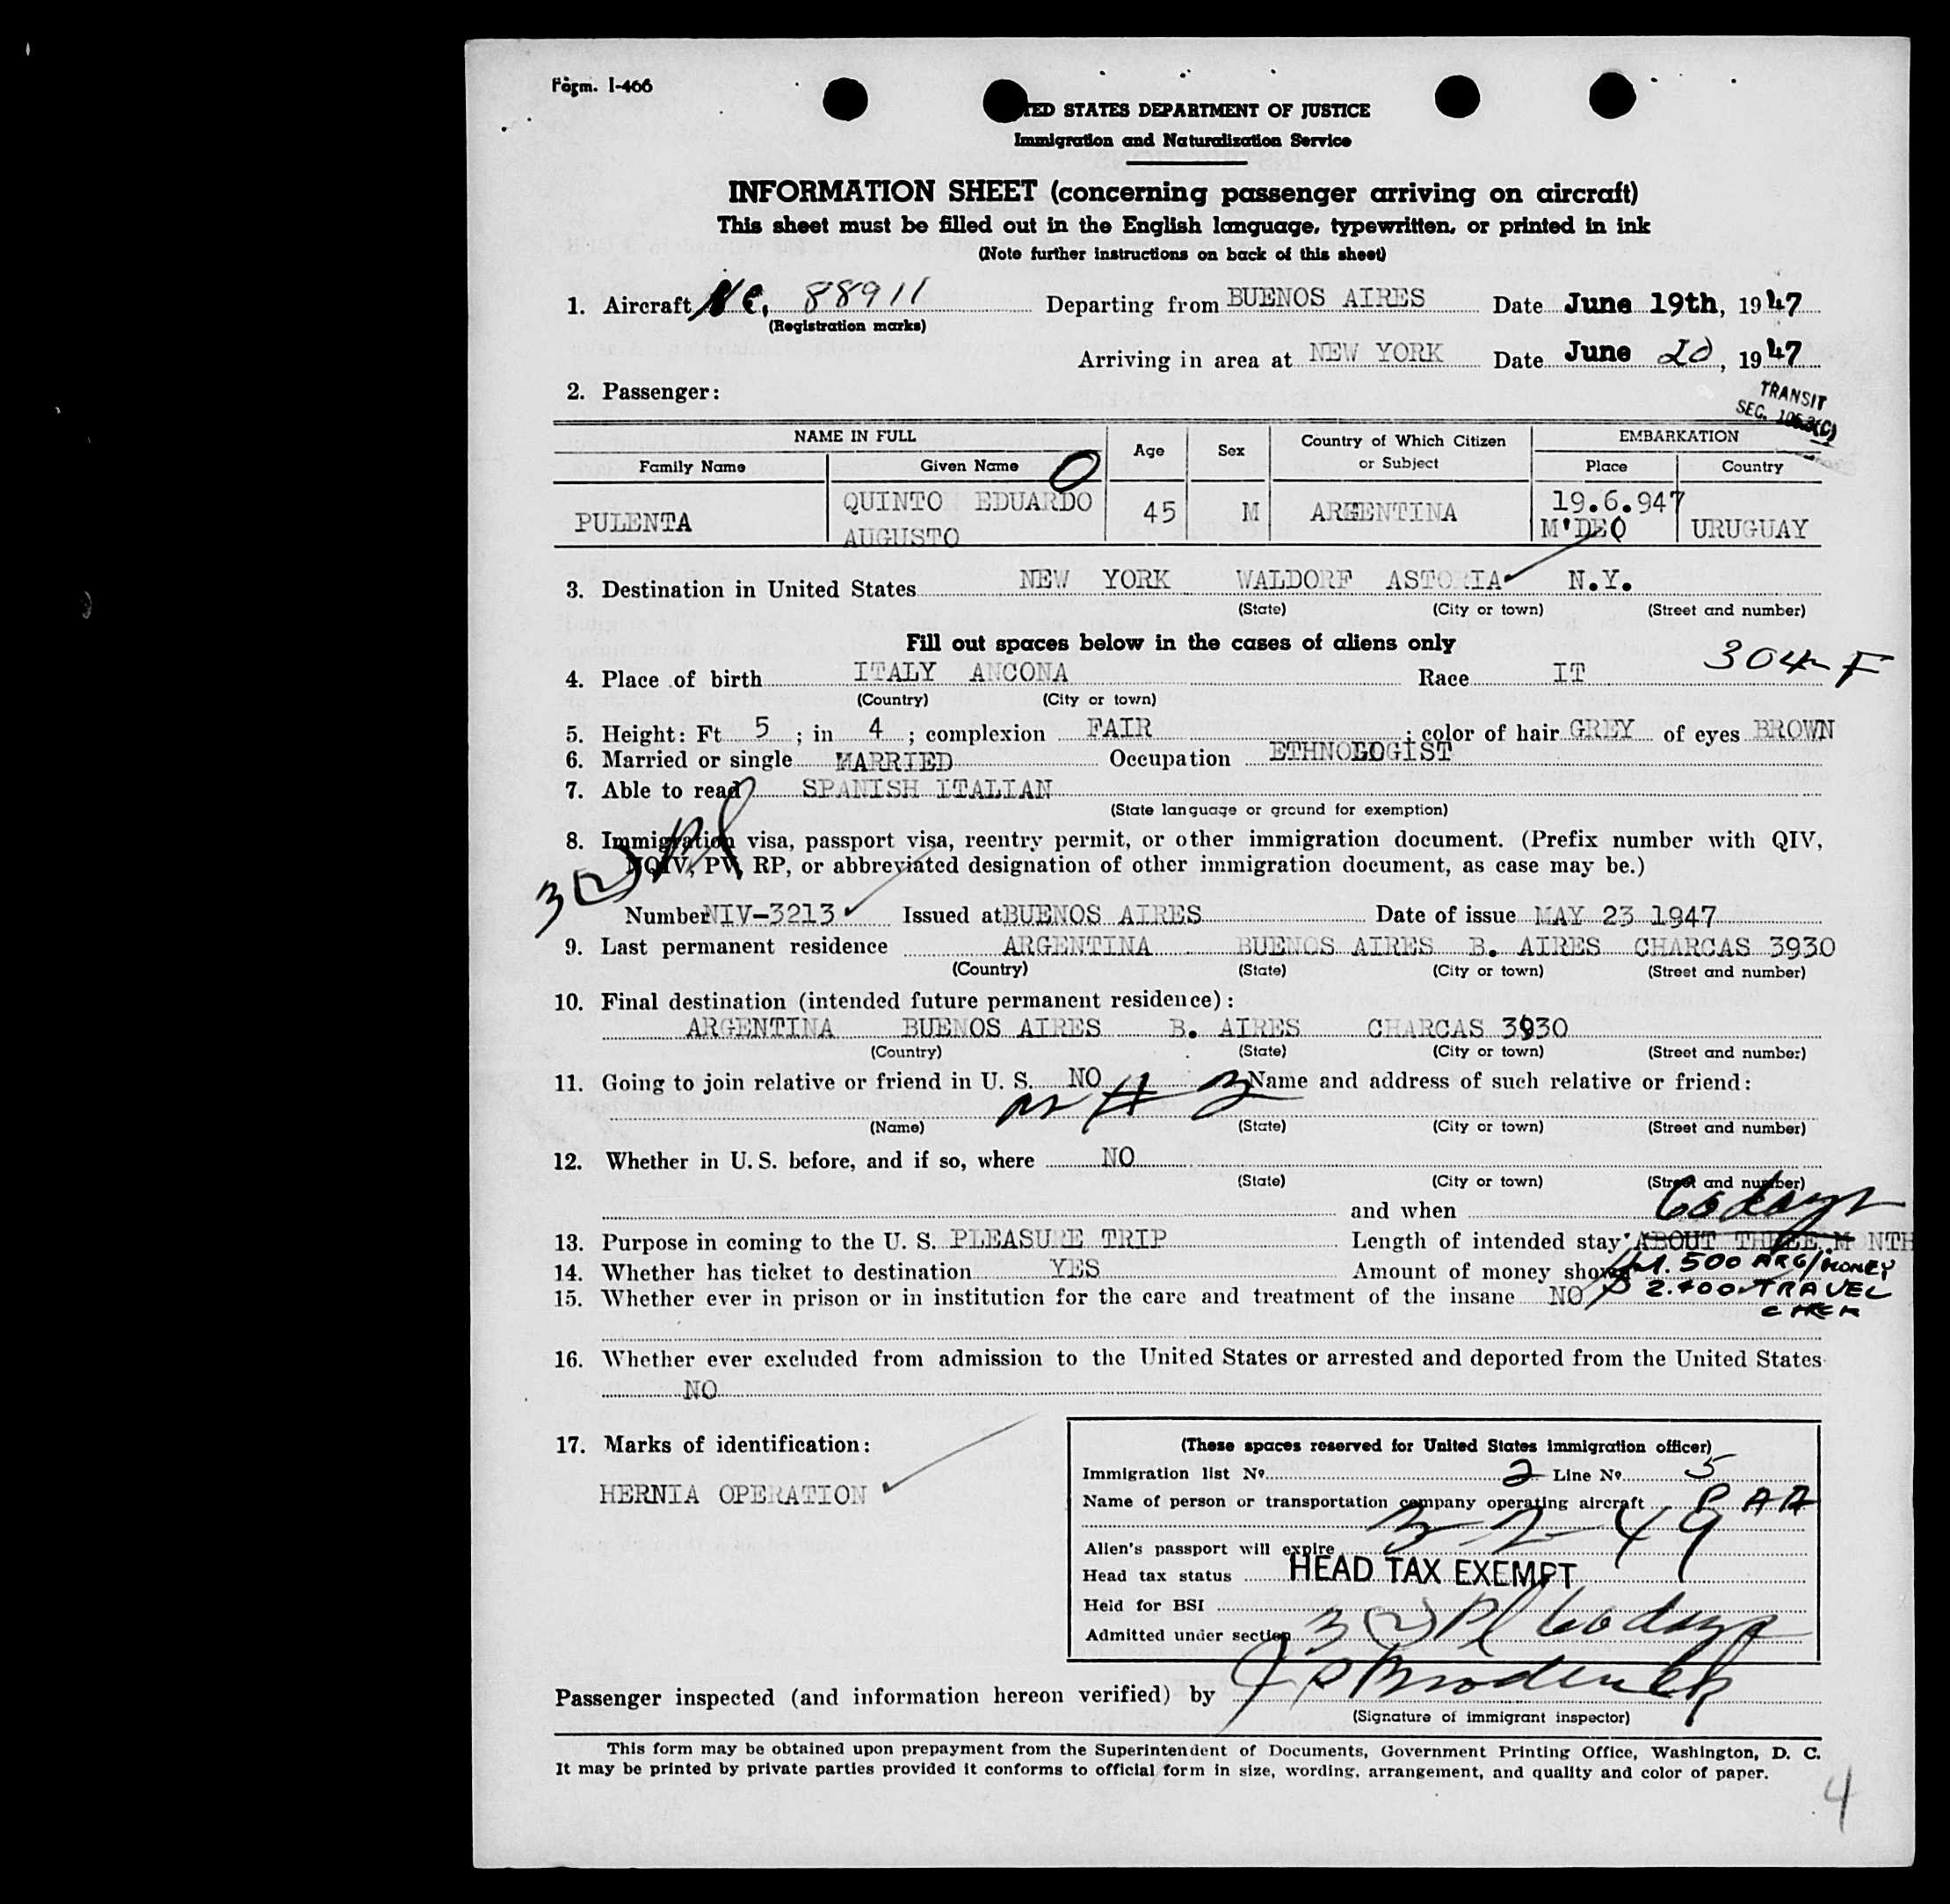 Form. I-466
TED STATES DEPARTMENT OF JUSTICE
Immigration and Naturalization Service
INFORMATION SHEET (concerning passenger arriving on aircraft)
This sheet must be filled out in the English language, typewritten, or printed in ink
(Note further instructions on back of this sheet)
1. Aircraft NC. 88911 Departing from BUENOS AIRES Date June 19th, 1947
(Registration marks)
Arriving in area at NEW YORK Date June 20, 1947
2. Passenger:
TRANSIT
SEC. 105.3(C)
NAME IN FULL Age Sex Country of Which Citizen or Subject EMBARKATION
Family Name Given Name Place Country
PULENTA QUINTO EDUARDO AUGUSTO 45 M ARGENTINA 19.6.947 M'DEO URUGUAY
3. Destination in United States NEW YORK WALDORF ASTORIA N.Y.
(State) (City or town) (Street and number)
Fill out spaces below in the cases of aliens only
304-F
4. Place of birth ITALY ANCONA Race IT
(Country) (City or town)
5. Height: Ft 5 ; in 4 ; complexion FAIR ; color of hair GREY of eyes BROWN
6. Married or single MARRIED Occupation ETHNOLOGIST
7. Able to read SPANISH ITALIAN
(State language or ground for exemption)
8. Immigration visa, passport visa, reentry permit, or other immigration document. (Prefix number with QIV,
NQIV, PV, RP, or abbreviated designation of other immigration document, as case may be.)
3(2) Pl
Number NIV-3213 Issued at BUENOS AIRES Date of issue MAY 23 1947
9. Last permanent residence ARGENTINA BUENOS AIRES B. AIRES CHARCAS 3930
(Country) (State) (City or town) (Street and number)
10. Final destination (intended future permanent residence):
ARGENTINA BUENOS AIRES B. AIRES CHARCAS 3930
(Country) (State) (City or town) (Street and number)
11. Going to join relative or friend in U. S. NO Name and address of such relative or friend:
as # 3
(Name) (State) (City or town) (Street and number)
12. Whether in U. S. before, and if so, where NO
(State) (City or town) (Street and number)
and when
60 days
13. Purpose in coming to the U. S. PLEASURE TRIP Length of intended stay ABOUT THREE MONTH
14. Whether has ticket to destination YES Amount of money shown 1.500 ARG/MONEY
15. Whether ever in prison or in institution for the care and treatment of the insane NO $ 2.400 TRAVEL
CHEK
16. Whether ever excluded from admission to the United States or arrested and deported from the United States
NO
17. Marks of identification:
HERNIA OPERATION
(These spaces reserved for United States immigration officer)
Immigration list No. 2 Line No. 5
Name of person or transportation company operating aircraft PAA
Alien's passport will expire 3-2-49
Head tax status HEAD TAX EXEMPT
Held for BSI
Admitted under section 3(2) Pl 60 days
Passenger inspected (and information hereon verified) by J S Broderick
(Signature of immigrant inspector)
This form may be obtained upon prepayment from the Superintendent of Documents, Government Printing Office, Washington, D. C.
It may be printed by private parties provided it conforms to official form in size, wording, arrangement, and quality and color of paper.
4